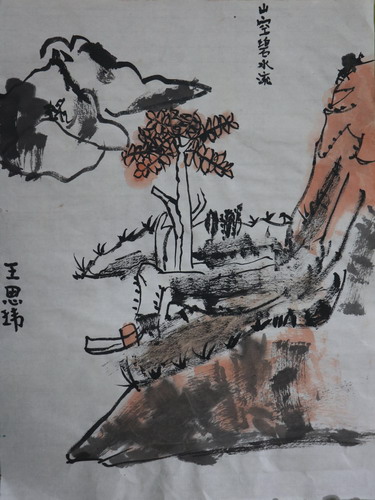 山空碧水流
王思玮